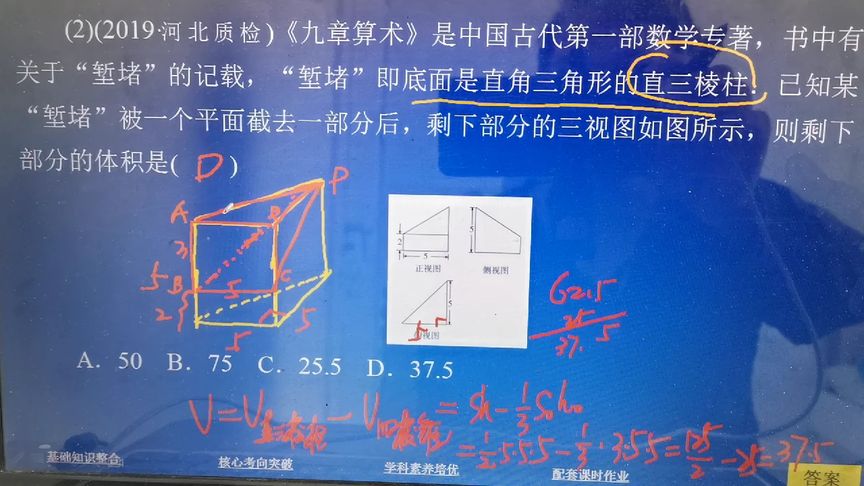 (2)(2019·河北质检)《九章算术》是中国古代第一部数学专著，书中有
关于“堑堵”的记载，“堑堵”即底面是直角三角形的直三棱柱．已知某
“堑堵”被一个平面截去一部分后，剩下部分的三视图如图所示，则剩下
部分的体积是( D )
P
A
3
5
B
C
5
2
5
5
2
5
正视图
5
侧视图
5
5
俯视图
62.5
25
37.5
A．50 B．75 C．25.5 D．37.5
V=V直三棱柱-V四棱锥=Sh-1/3S₀h₀
=1/2·5·5·5-1/3·3·5·5=125/2-25=37.5
基础知识整合
核心考向突破
学科素养培优
配套课时作业
答案